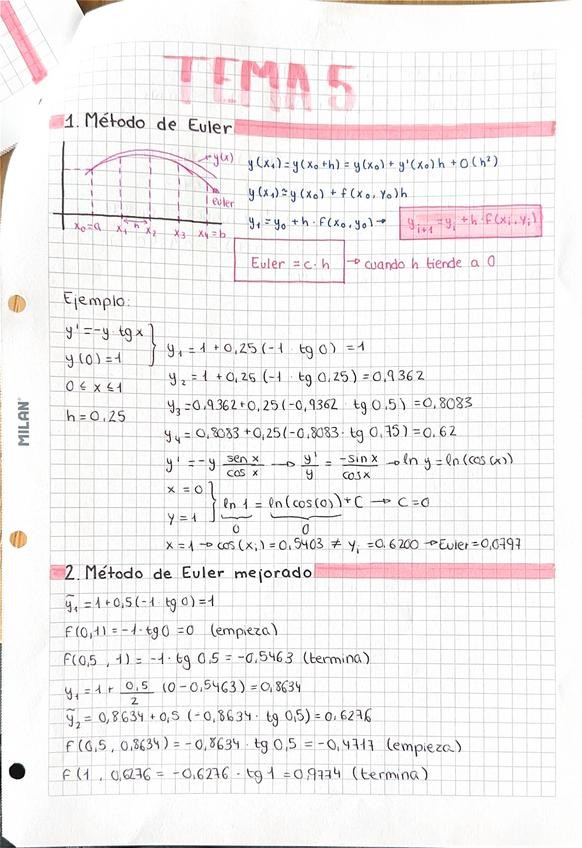 TEMA 5
1. Método de Euler
y(x)
euler
x₀=a x₁ h x₂ x₃ x₄=b
y(x₁)=y(x₀+h)=y(x₀)+y'(x₀)h+O(h²)
y(x₁)≃y(x₀)+f(x₀,y₀)h
y₁=y₀+h·f(x₀,y₀)→ yᵢ₊₁=yᵢ+h·f(xᵢ,yᵢ)
Euler=c·h → cuando h tiende a 0
Ejemplo:
y'=-y·tgx
y(0)=1
0≤x≤1
h=0,25
y₁=1+0,25(-1·tg0)=1
y₂=1+0,25(-1·tg0,25)=0,9362
y₃=0,9362+0,25(-0,9362·tg0,5)=0,8083
y₄=0,8083+0,25(-0,8083·tg0,75)=0,62
y'=-y senx/cosx → y'/y = -sinx/cosx → ln y=ln(cos(x))
x=0
y=1 } ln1=ln(cos(0))+C → C=0
0 0
x=1→cos(xᵢ)=0,5403≠yᵢ=0,6200→Euler=0,0797
2. Método de Euler mejorado
ỹ₁=1+0,5(-1·tg0)=1
f(0,1)=-1·tg0=0 (empieza)
f(0,5, 1)=-1·tg0,5=-0,5463 (termina)
y₁=1+ 0,5/2 (0-0,5463)=0,8634
ỹ₂=0,8634+0,5(-0,8634·tg0,5)=0,6276
f(0,5, 0,8634)=-0,8634·tg0,5=-0,4717 (empieza)
f(1, 0,6276=-0,6276·tg1=0,9774 (termina)
MILAN